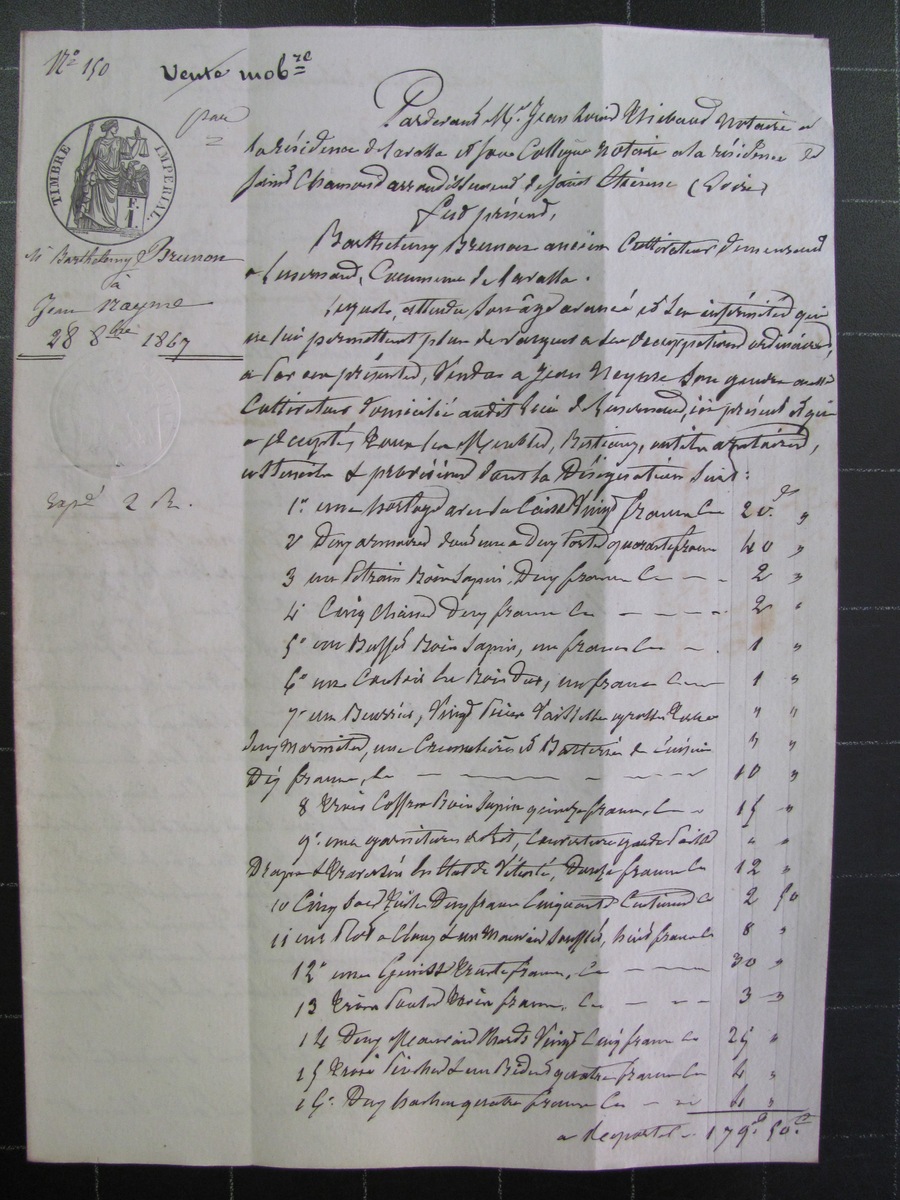 N° 150
Vente mob.re
TIMBRE IMPERIAL
F. I.
Barthelemy Brunon
à
Jean Neyme
28 8bre 1867
expé 2 R.
Pardevant Me Jean Louis Thibaud Notaire à
la résidence de Laralla et son Collègue Notaire à la résidence de
Saint Chamond arrondissement de Saint Etienne (Loire)
fut présent,
Barthelemy Brunon ancien Cultivateur demeurant
à Commune de Laralla.
Lequel, attendu son âge avancé et ses infirmités qui
ne lui permettent plus de vaquer à ses occupations ordinaires,
a par ces présentes, Vendu à Jean Neyme son gendre aussi
Cultivateur domicilié audit lieu de ici présent et qui
accepte, tous les Meubles, Bestiaux, outils aratoires,
ustensiles & provisions dont la Désignation suit :
1° une horloge avec sa Caisse Vingt francs Ci 20.f "
2 Deux armoires dont une a Deux portes quarante francs 40 "
3 un Petrin Bois Sapin, Deux francs Ci 2 "
4 Cinq Chaises Deux francs Ci 2 "
5° un Buffet Bois Sapin, un franc Ci 1 "
6° une Bois Dur, un franc Ci 1 "
7° une Vingt " "
Deux Marmites, une Cremaillère et Batterie de Cuisine " "
Dix francs, Ci 10 "
8 trois Coffres Bois Sapin quinze francs, Ci 15 "
9° une garniture de lit, Couverture garde paille " "
Draps & Traversin en état de Vétusté, Douze francs Ci 12 "
10 Cinq Sacs toile Deux francs Cinquante Centimes Ci 2 50
11 un & un Mauvais Soufflet, huit francs Ci 8 "
12° une Genisse trente francs, Ci 30 "
13 trois Poules trois francs, Ci 3 "
14 Deux Mauvais Chars Vingt Cinq francs Ci 25 "
15 trois Pioches & un quatre francs Ci 4 "
16° Deux quatre francs Ci 4 "
à reporter 179.f 50.c